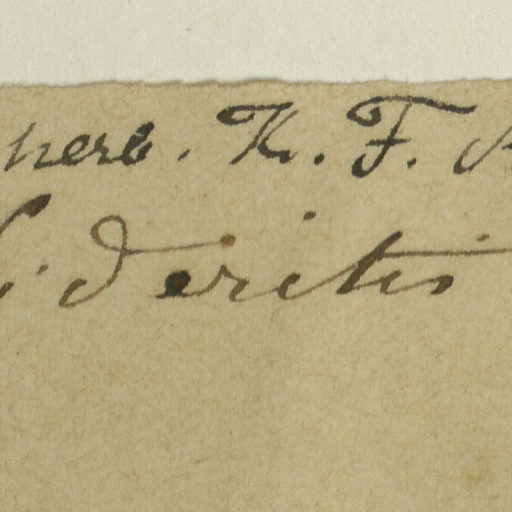 herb. K. F.
Sideritis